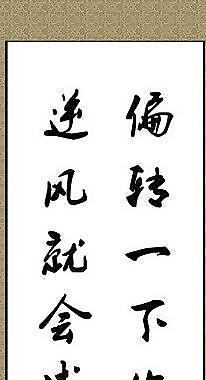 偏转一下
逆风就会